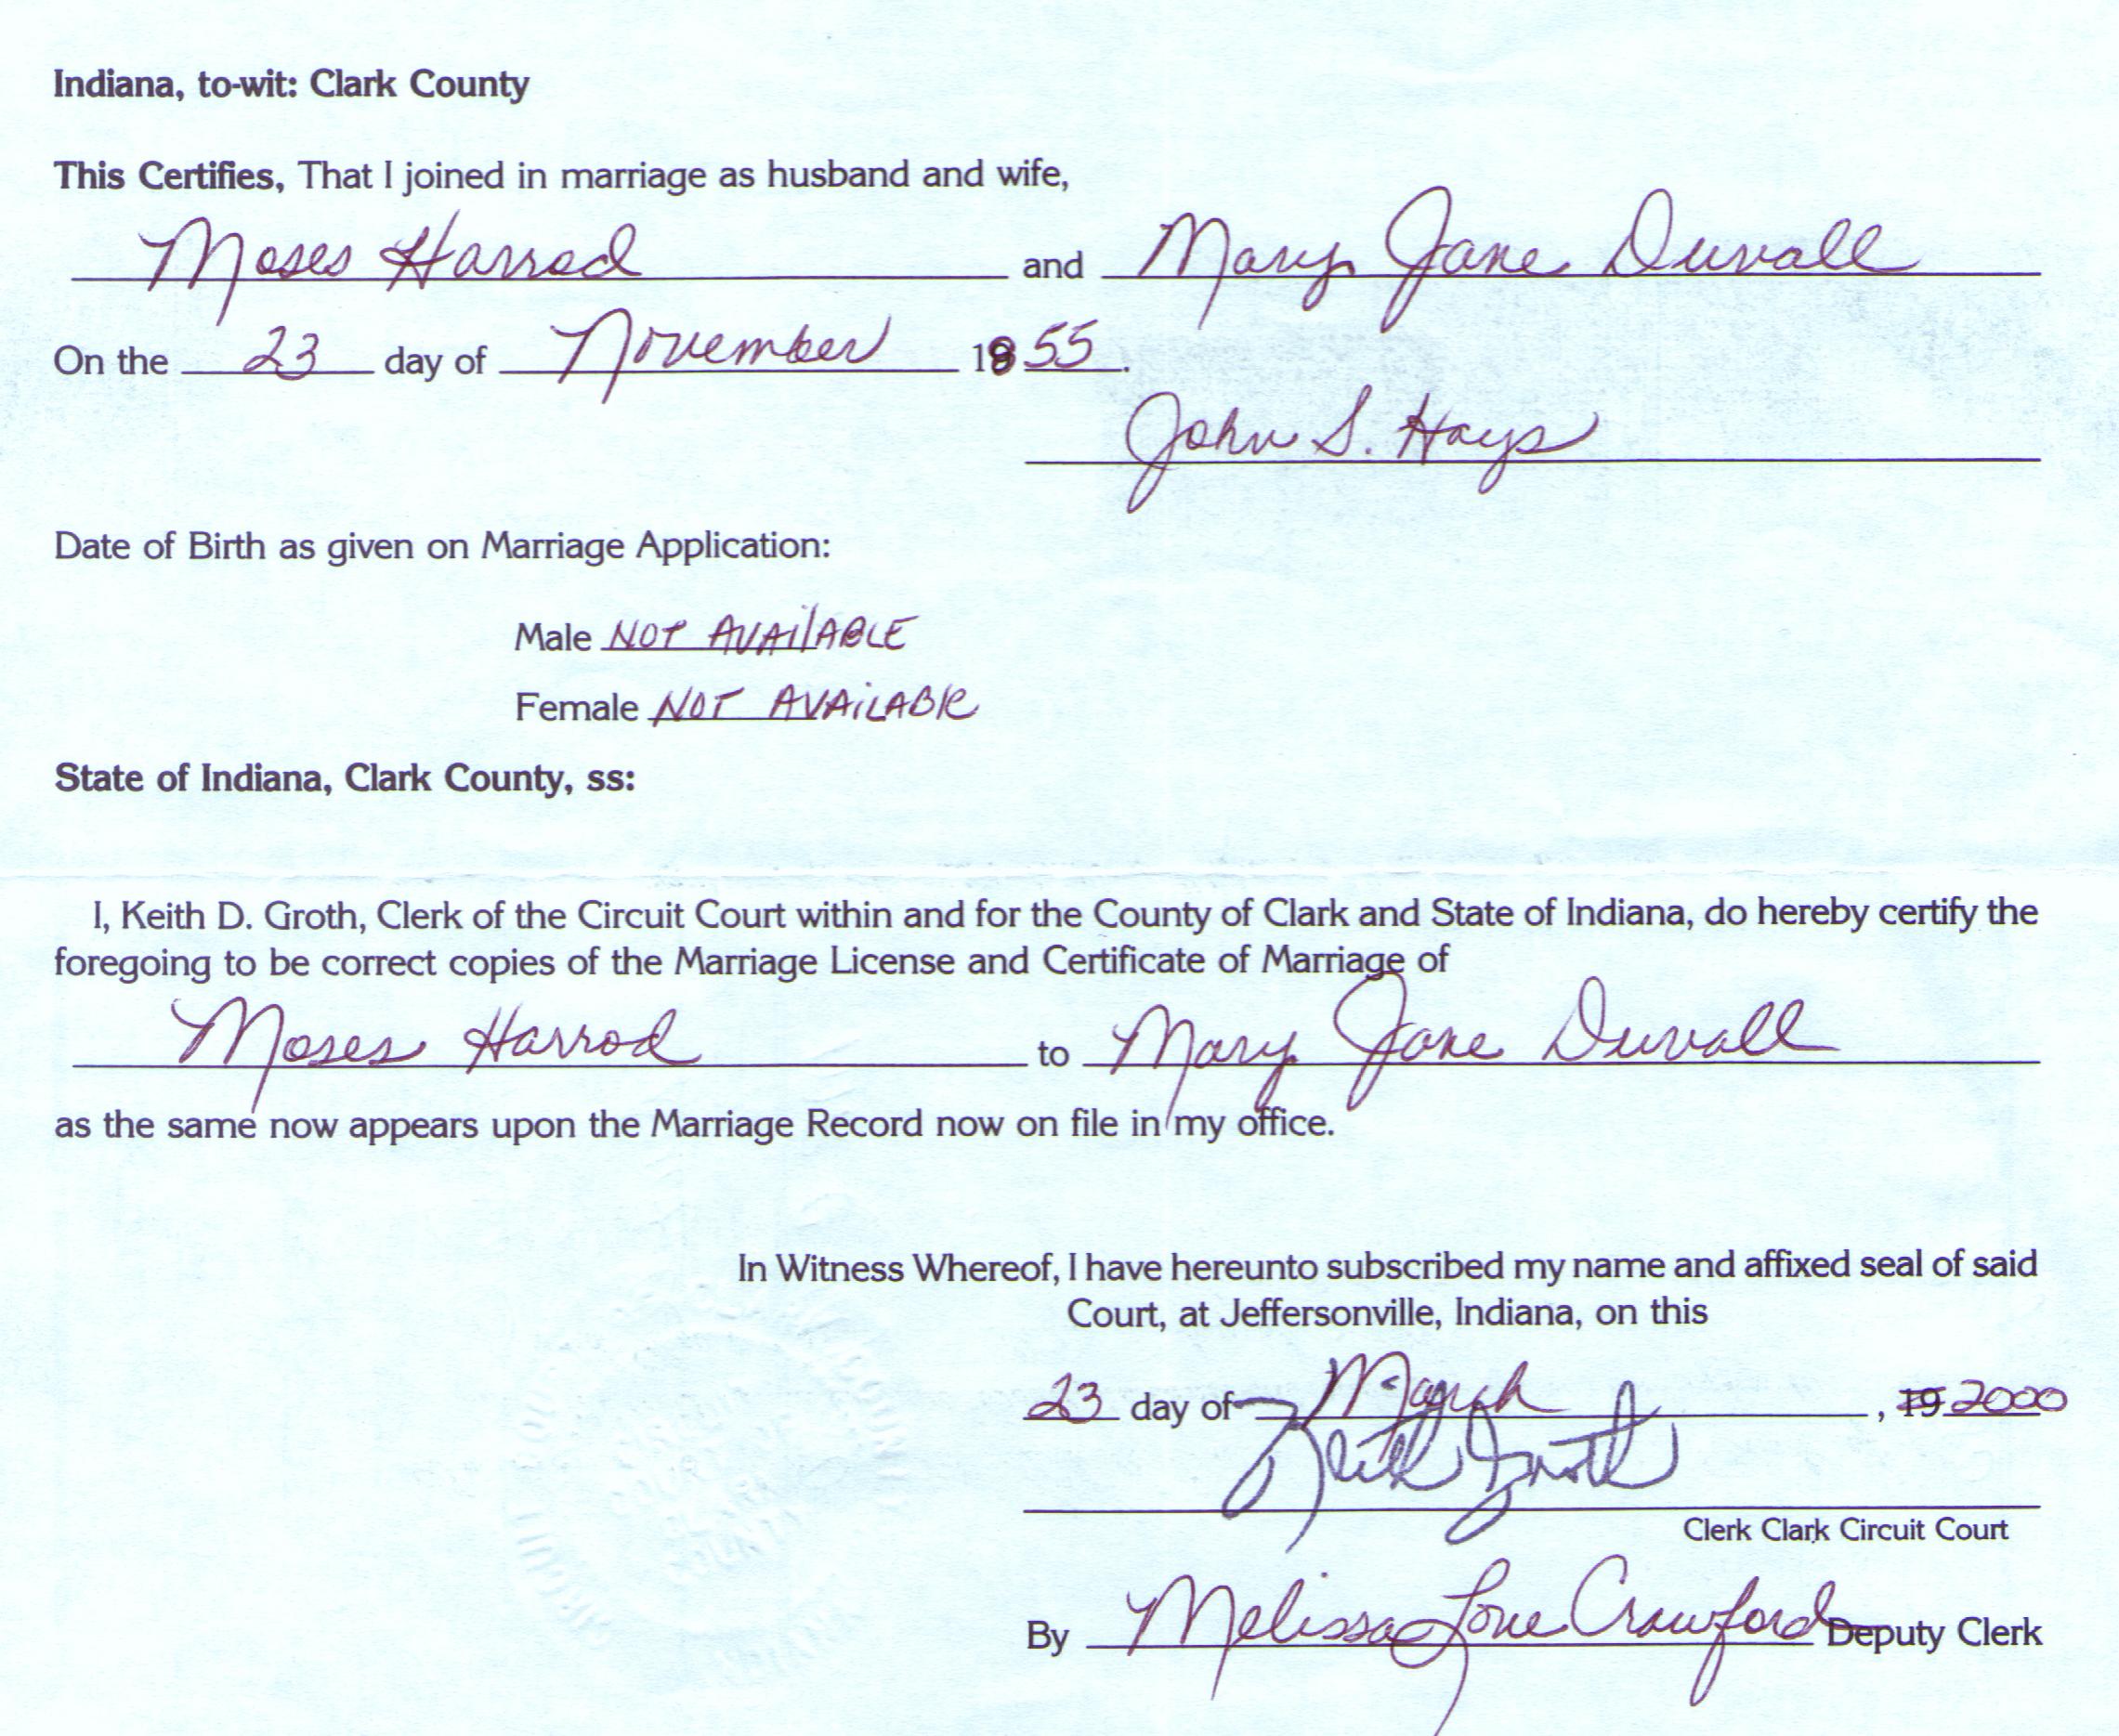 Indiana, to-wit: Clark County
This Certifies, That I joined in marriage as husband and wife,
Moses Harrod and Mary Jane Duvall
On the 23 day of November 1855.
John S. Hays
Date of Birth as given on Marriage Application:
Male NOT AVAILABLE
Female NOT AVAILABLE
State of Indiana, Clark County, ss:
I, Keith D. Groth, Clerk of the Circuit Court within and for the County of Clark and State of Indiana, do hereby certify the
foregoing to be correct copies of the Marriage License and Certificate of Marriage of
Moses Harrod to Mary Jane Duvall
as the same now appears upon the Marriage Record now on file in my office.
In Witness Whereof, I have hereunto subscribed my name and affixed seal of said
Court, at Jeffersonville, Indiana, on this
23 day of March, 19 2000
Keith Groth
Clerk Clark Circuit Court
By Melissa Love Crawford Deputy Clerk